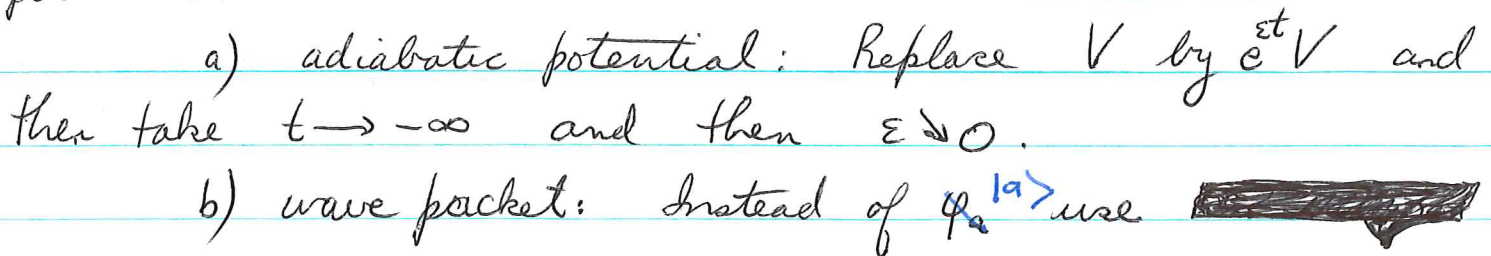 a) adiabatic potential: Replace V by e^{εt} V and
then take t → -∞ and then ε ↘ 0.
b) wave packet: Instead of φₐ |a> use